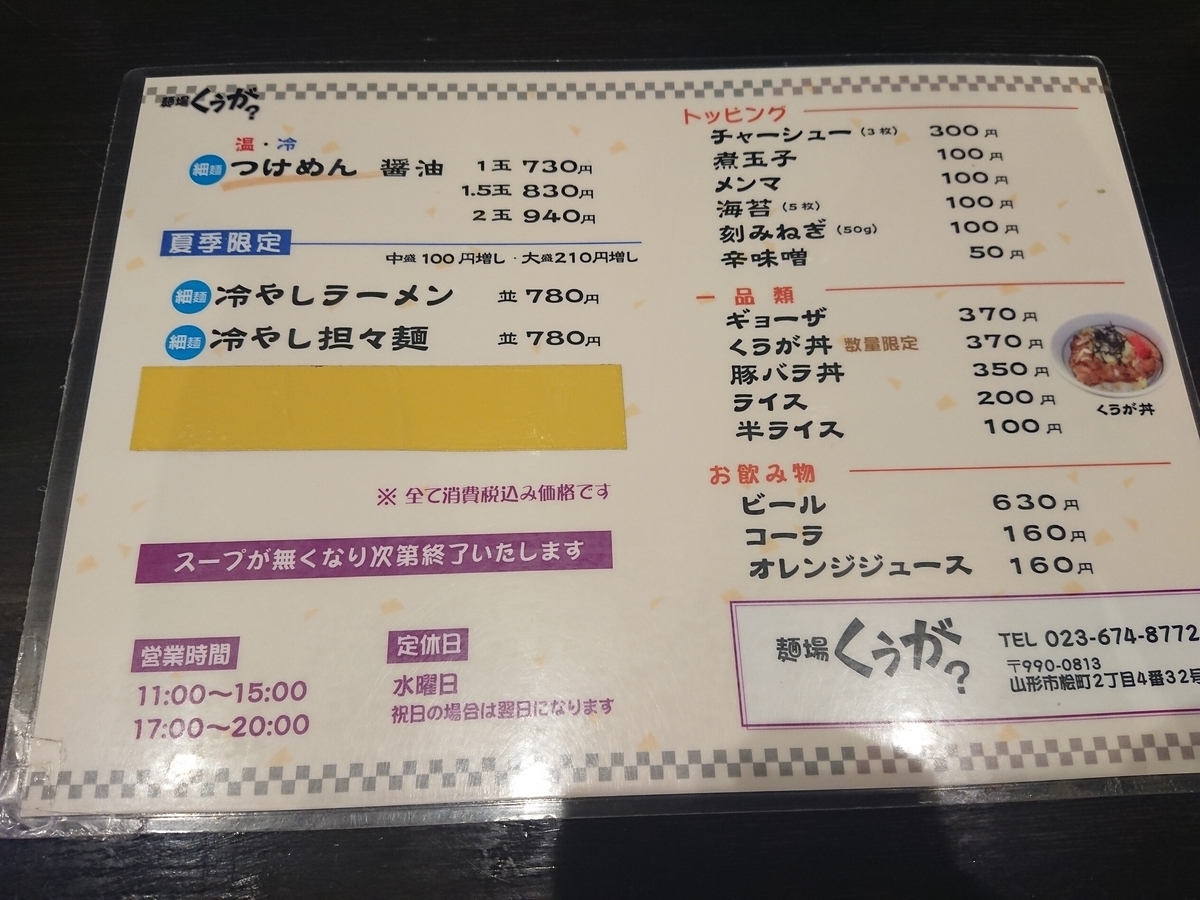 麺場 くうが?
温・冷
細麺 つけめん 醤油 1玉 730円
1.5玉 830円
2玉 940円
夏季限定
中盛100円増し・大盛210円増し
細麺 冷やしラーメン 並 780円
細麺 冷やし担々麺 並 780円
※ 全て消費税込み価格です
スープが無くなり次第終了いたします
営業時間
11:00～15:00
17:00～20:00
定休日
水曜日
祝日の場合は翌日になります
トッピング
チャーシュー(3枚) 300円
煮玉子 100円
メンマ 100円
海苔(5枚) 100円
刻みねぎ(50g) 100円
辛味噌 50円
一品類
ギョーザ 370円
くうが丼 数量限定 370円
豚バラ丼 350円
ライス 200円
半ライス 100円
くうが丼
お飲み物
ビール 630円
コーラ 160円
オレンジジュース 160円
麺場 くうが?
TEL 023-674-8772
〒990-0813
山形市桧町2丁目4番32号